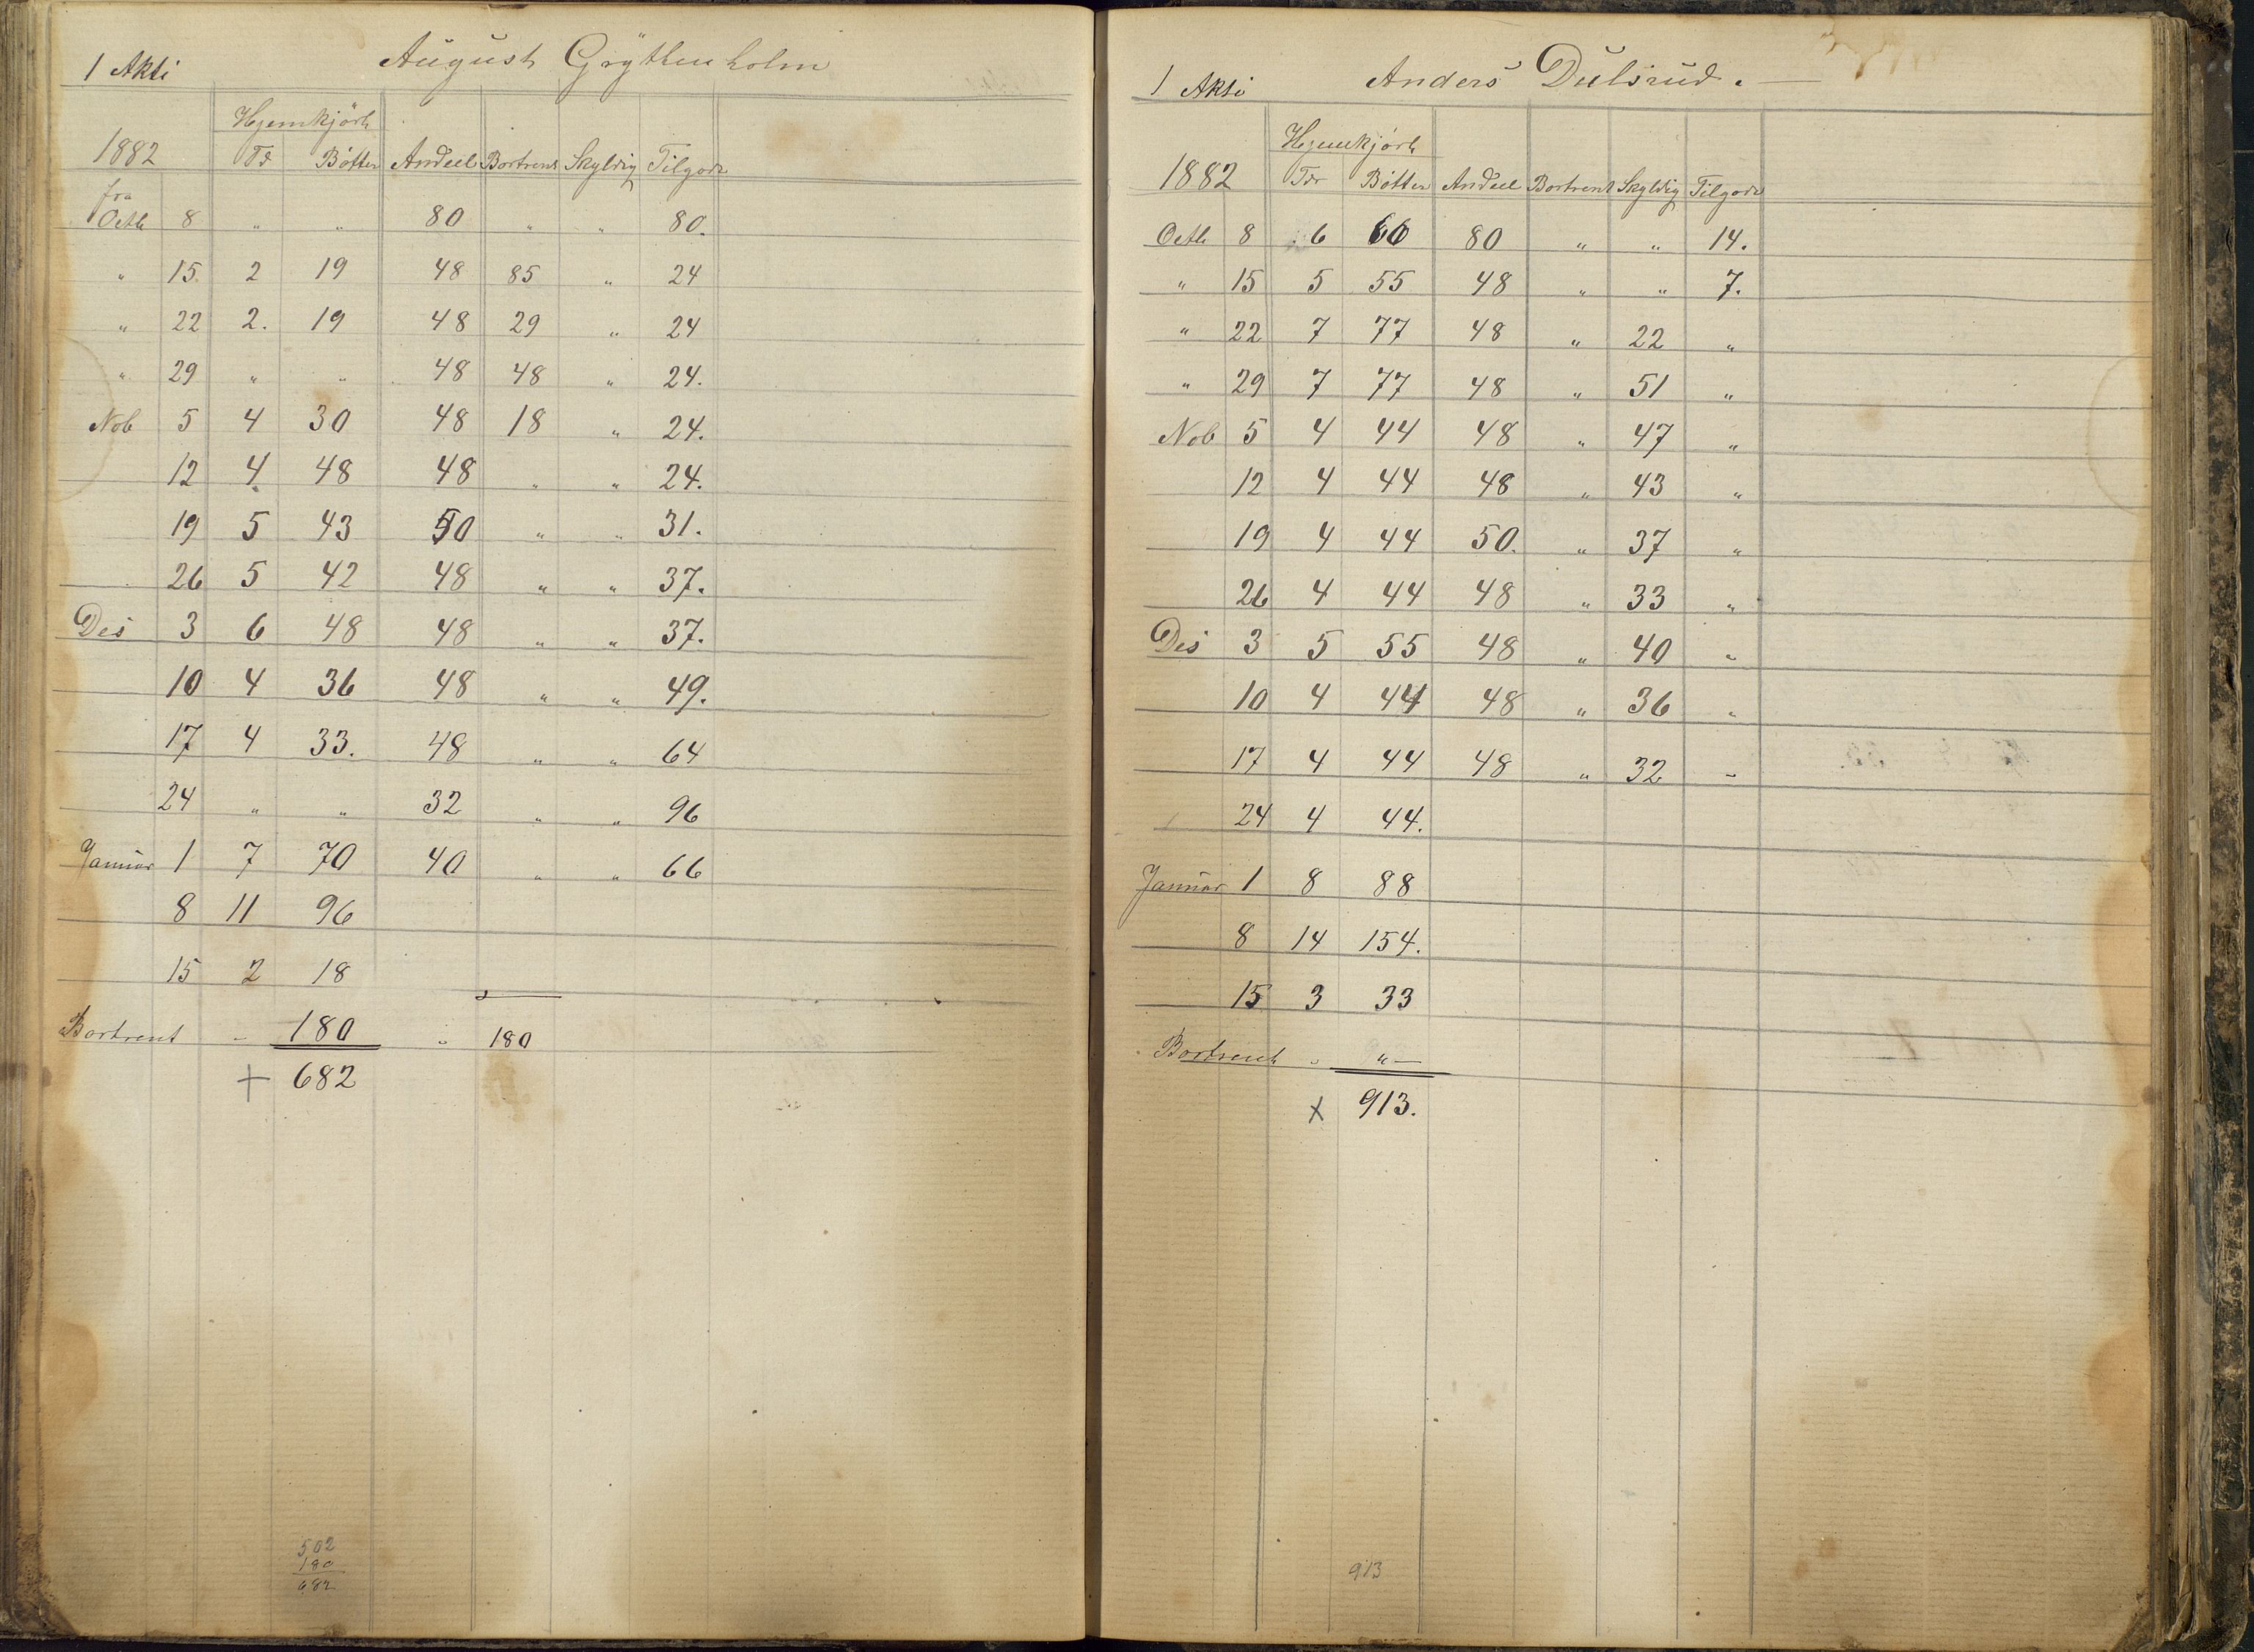 1 Akti August Grythenholm
Hjemkjört
1882 Td Bötter Andeel Bortrent Skyldig Tilgode
fra
Octb 8 " " 80 " " 80.
" 15 2 19 48 85 " 24
" 22 2. 19 48 29 " 24
" 29 " " 48 48 " 24.
Nob 5 4 30 48 18 " 24.
12 4 48 48 " " 24.
19 5 43 50 " " 31.
26 5 42 48 " " 37.
Des 3 6 48 48 " " 37.
10 4 36 48 " " 49.
17 4 33. 48 " " 64
24 " " 32 " " 96
Januar 1 7 70 40 " " 66
8 11 96
15 2 18
Bortrent - 180 " 180
+ 682
502
180
682
1 Akti Anders Dulsrud.
Hjemkjört
1882 Tdr Bötter Andeel Bortrent Skyldig Tilgode
Octb 8 6 66 80 " " 14.
" 15 5 55 48 " " 7.
" 22 7 77 48 " 22 "
" 29 7 77 48 " 51 "
Nob 5 4 44 48 " 47 "
12 4 44 48 " 43 "
19 4 44 50. " 37 "
26 4 44 48 " 33 "
Des 3 5 55 48 " 40 "
10 4 44 48 " 36 "
17 4 44 48 " 32 "
24 4 44.
Januar 1 8 88
8 14 154.
15 3 33
Bortrent " "
x 913.
913